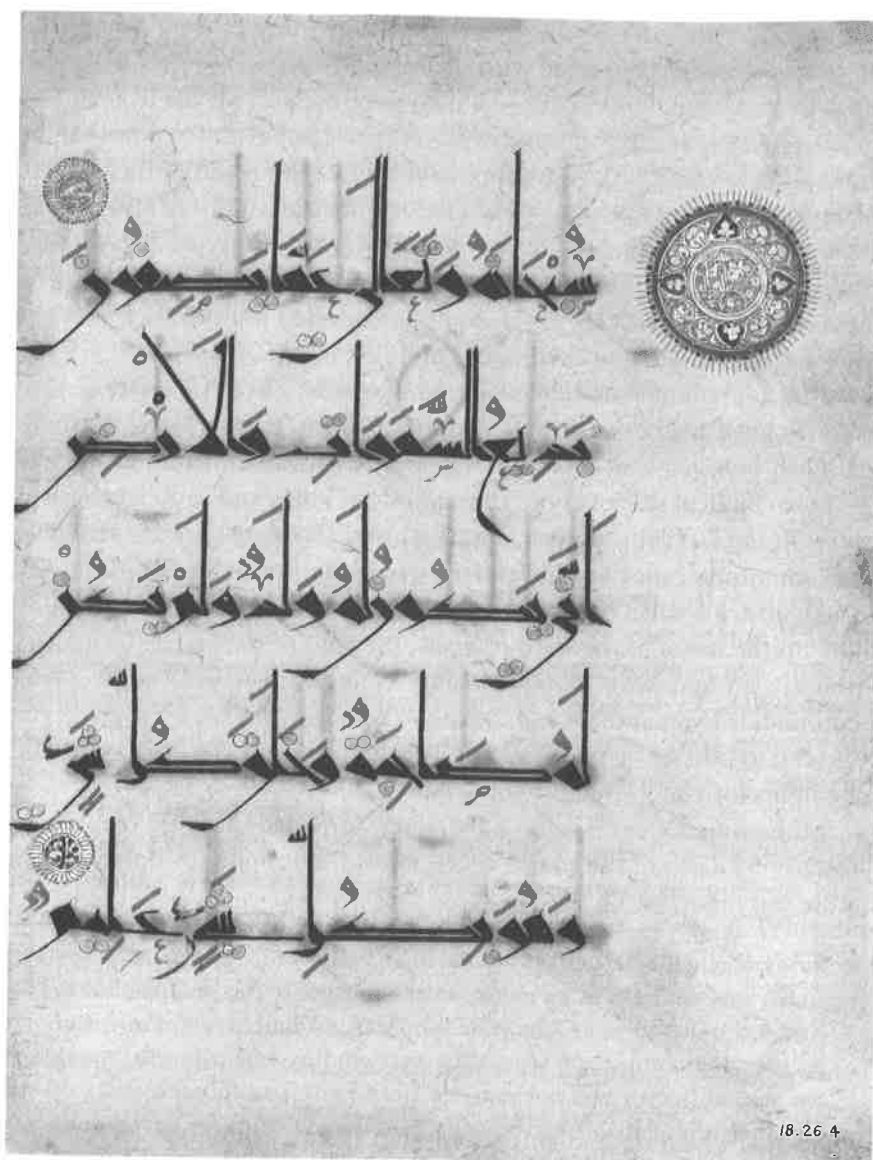 سُبْحَانَهُ وَتَعَالَىٰ عَمَّا يَصِفُونَ
بَدِيعُ السَّمَوَاتِ وَالْأَرْضِ
أَنَّىٰ يَكُونُ لَهُ وَلَدٌ وَلَمْ تَكُنْ
لَهُ صَاحِبَةٌ وَخَلَقَ كُلَّ شَيْءٍ
وَهُوَ بِكُلِّ شَيْءٍ عَلِيمٌ
18.26 4